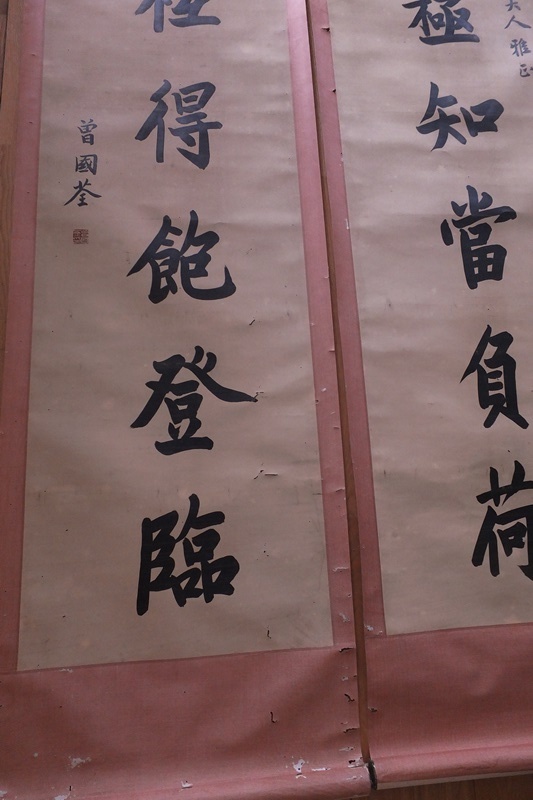 極知當負荷
大人雅正
得飽登臨
曾國荃